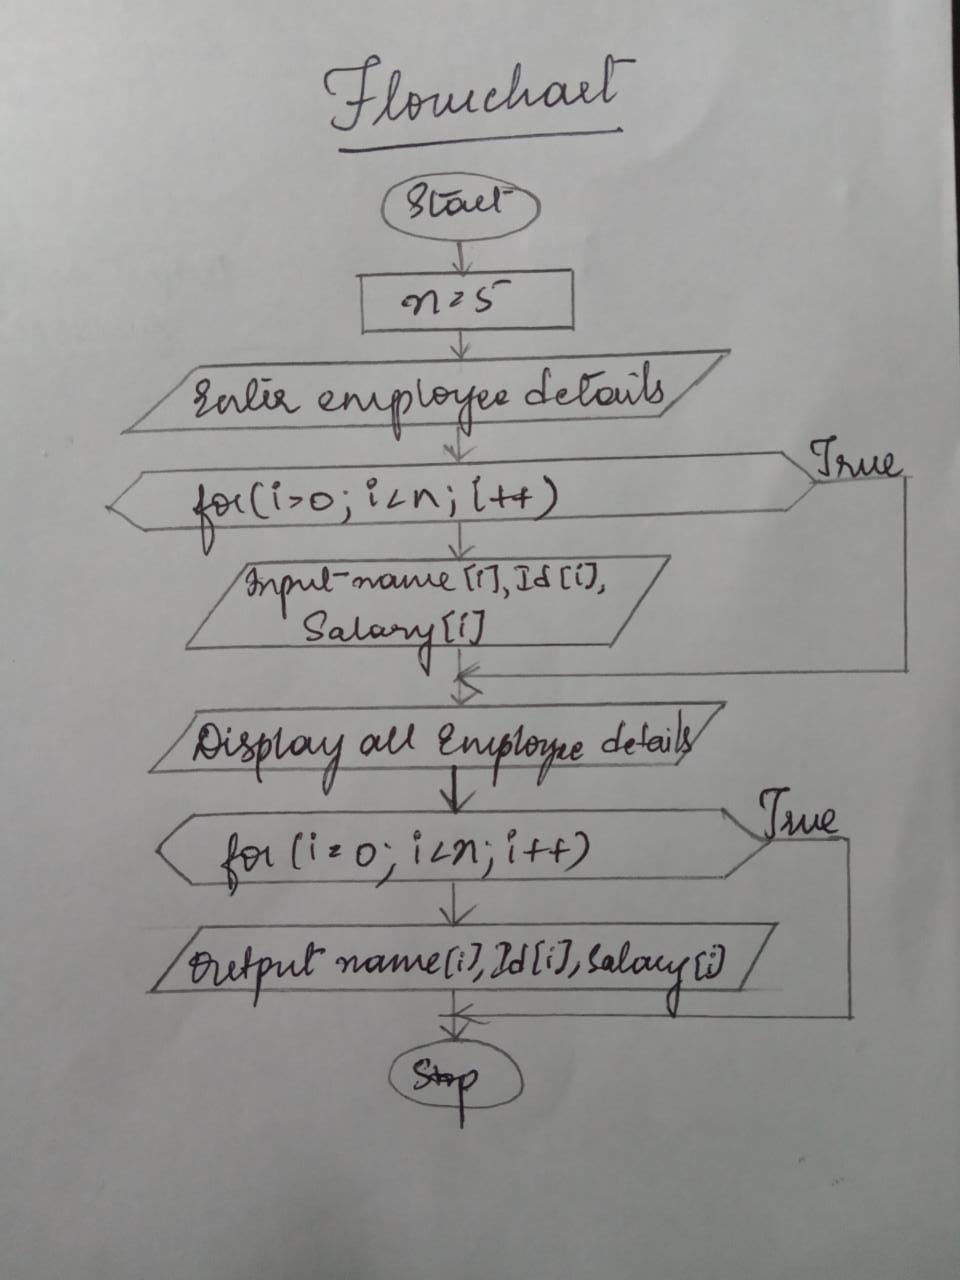 Flowchart
Start
n=5
Enter employee details
True
for(i>0; i<n; i++)
Input name[i], Id[i],
Salary[i]
Display all Employee details
True
for (i=0; i<n; i++)
Output name[i], Id[i], Salary[i]
Stop